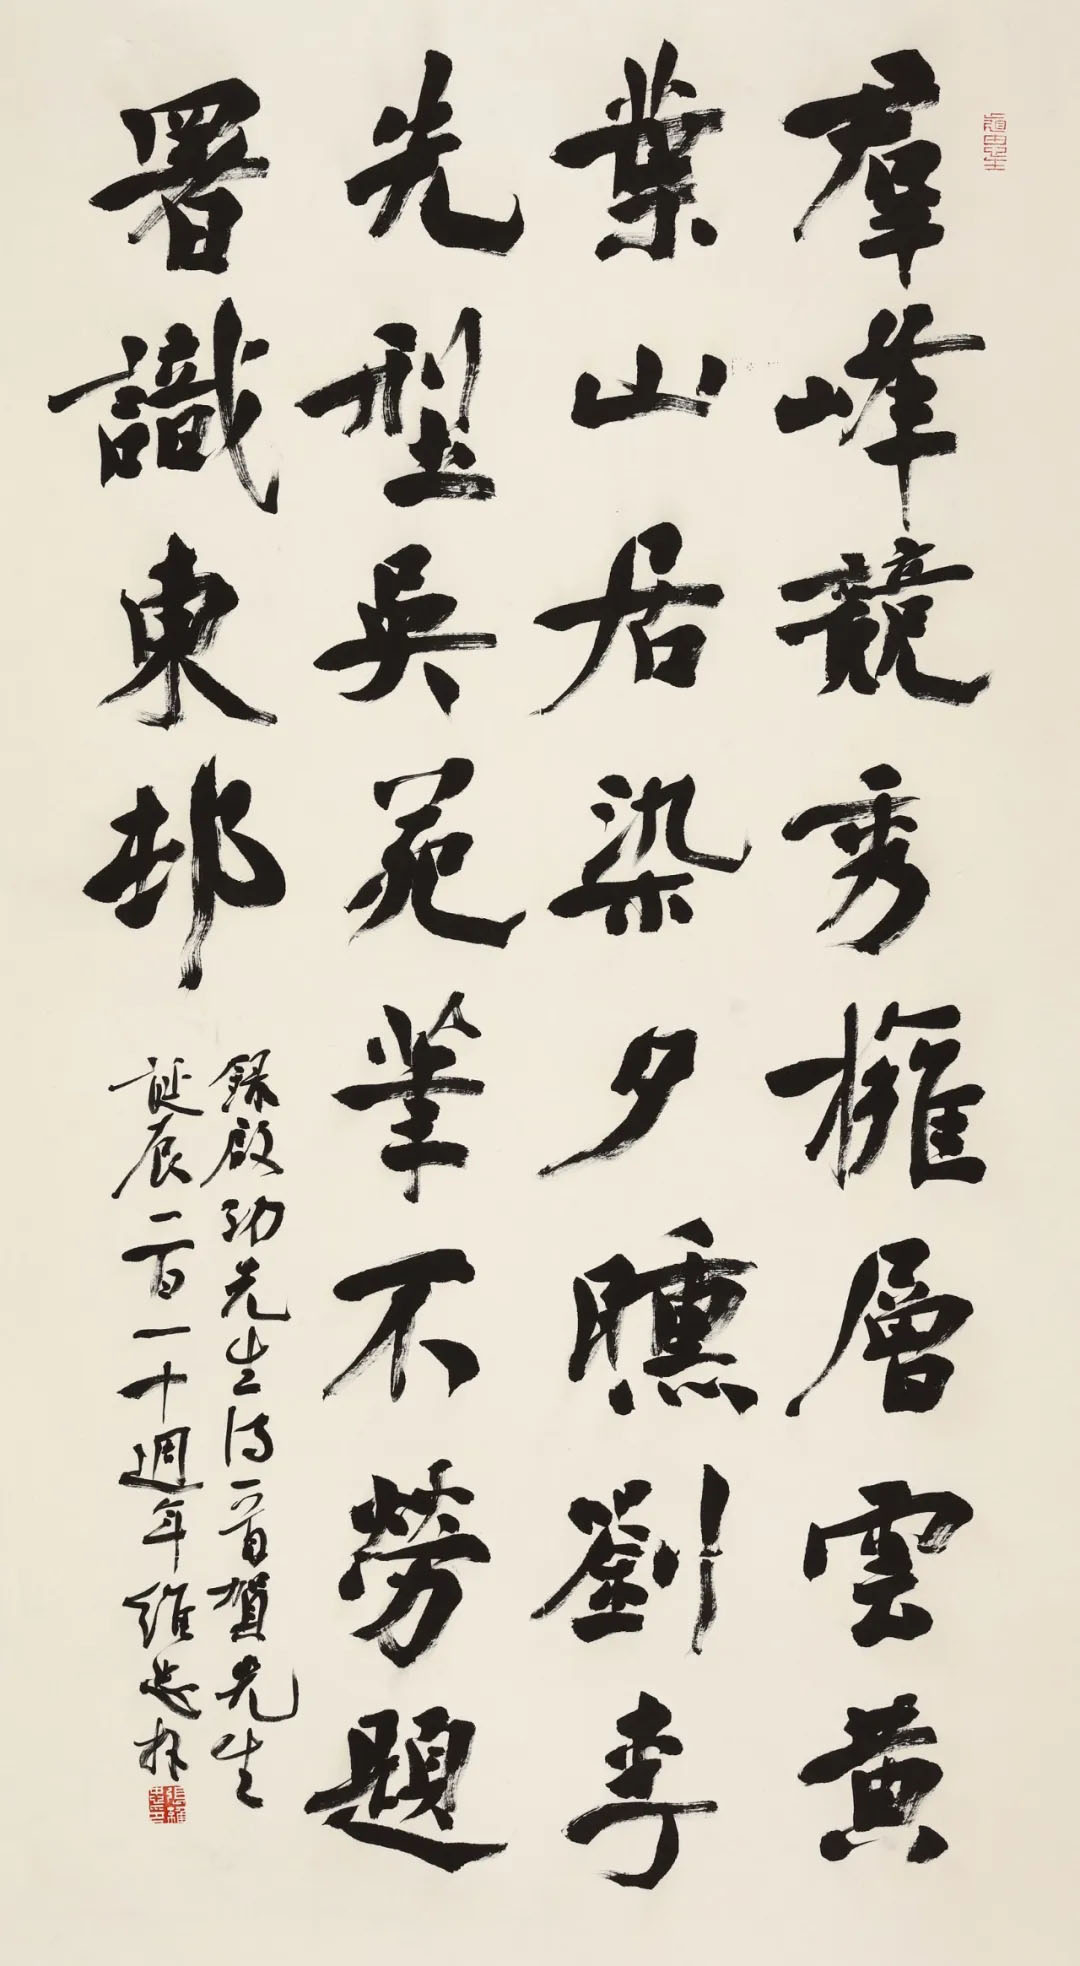 羣峰競秀擁層雲黄
葉山居染夕曛劉李
先型吳苑筆不勞題
署識東邨
録啟功先生詩一首賀先生
誕辰一百一十週年維忠拜
張維忠印